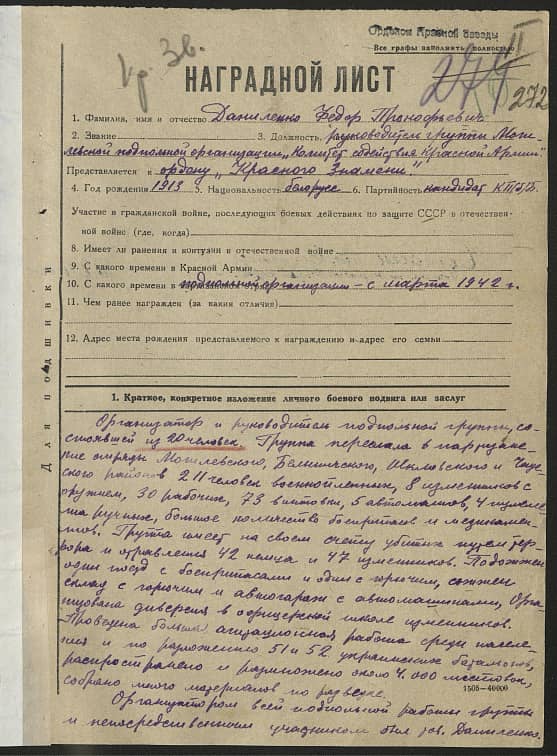 Орденом Красной Звезды
Все графы заполнять полностью
Пр. Зв.
НАГРАДНОЙ ЛИСТ
272
1. Фамилия, имя и отчество Даниленко Федор Прокофьевич
2. Звание 3. Должность руководитель группы Моги-
левской подпольной организации „Комитет содействия Красной Армии"
Представляется к ордену „Красного Знамени"
4. Год рождения 1913 5. Национальность белорусс 6. Партийность кандидат КП/б/Б.
Участие в гражданской войне, последующих боевых действиях по защите СССР и отечествен-
ной войне (где, когда)
8. Имеет ли ранения и контузии в отечественной войне
9. С какого времени в Красной Армии
10. С какого времени в подпольной организации – с марта 1942 г.
11. Чем ранее награжден (за какие отличия)
12. Адрес места рождения представляемого к награждению и адрес его семьи
Для подшивки
1. Краткое, конкретное изложение личного боевого подвига или заслуг
Организатор и руководитель подпольной группы, со-
стоявшей из 20 человек. Группа переслала в партизанс-
кие отряды Могилевского, Белыничского, Шкловского и
ского районов 211 человек военнопленных, 8 изменников с
оружием, 30 рабочих, 73 винтовки, 5 автоматов, 4 пулеме-
та ручных, большое количество боеприпасов и медикамен-
тов. Группа имеет на своем счету убитых путем тер-
рора и отравления 42 немца и 47 изменников. Подожжен
один поезд с боеприпасами и один с горючим, сожжен
склад с горючим и автогараж с автомашинами, Орга-
низована диверсия в офицерской школе изменников.
Проведена большая агитационная работа среди населе-
ния и по разложению 51 и 52 украинских батальонов,
распространено и размножено около 4.000 листовок,
собрано много материалов по разведке.
1505–40000
Организатором всей подпольной работы группы
и непосредственным участником был тов. Даниленко.